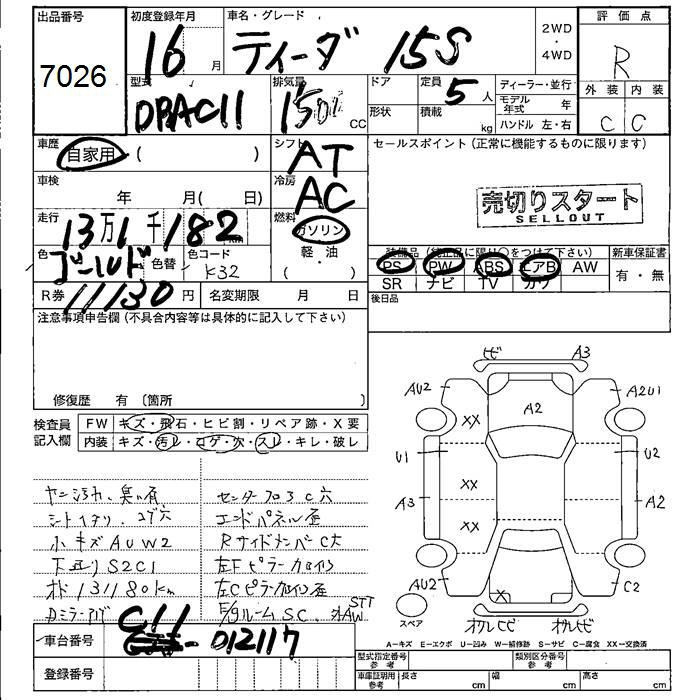 出品番号
7026
初度登録年月
16 月
車名・グレード
ティーダ 15S
2WD
・
4WD
評価点
R
外装 内装
C C
型式
DBAC11
排気量
1500 CC
ドア
形状
定員
5 人
積載
kg
ディーラー・並行
モデル年式 年
ハンドル 左・右
車歴
自家用 ( )
シフト
AT
セールスポイント (正常に機能するものに限ります)
売切りスタート
SELLOUT
車検
年 月( 日)
冷房
AC
走行
13万1千182
燃料
ガソリン
軽油
( ・ )
色
ゴールド
色替
色コード
K32
装備品 (純正品に限り○をつけて下さい)
PS PW ABS エアB AW
SR ナビ TV カワ
新車保証書
有・無
R券 11130 円
名変期限 月 日
後日品
注意事項申告欄 (不具合内容等は具体的に記入して下さい)
修復歴 有 〔箇所 〕
検査員記入欄
FW キズ・飛石・ヒビ割・リペア跡・X要
内装 キズ・汚レ・コゲ・穴・スレ・キレ・破レ
ヤニ汚れ、臭い有
シートヘタリ、コゲ穴
小キズAUW2
下廻りS2C1
オド131180km
センターフロアC穴
エンドパネル歪
RサイドメンバーC大
左Fピラー
左Cピラー 歪
ルームSC、
STT
車台番号
C11-012117
登録番号
ヒビ A3
AU2 A2U1
XX A2
U1 U2
XX
A3 A2
XX
AU2 C2
XX
スペア
ワレヒビ ワレヒビ
A-キズ E-エクボ U-凹み W-補修跡 S-サビ C-腐食 XX-交換済
型式指定番号
参考
類別区分番号
参考
車庫証明用
参考
長さ cm 幅 cm 高さ cm